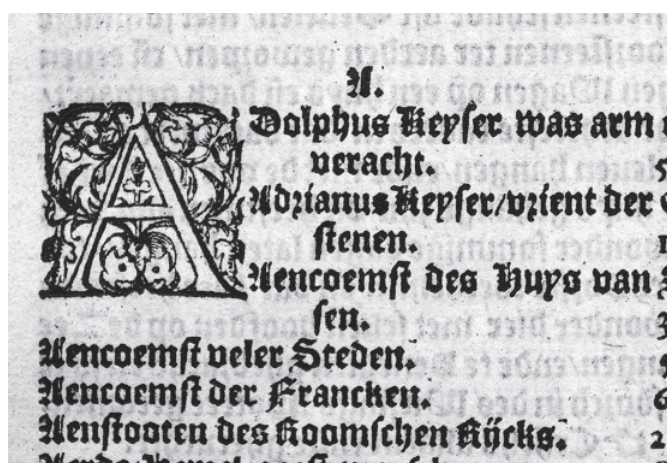 A.
ADolphus Keyser was arm
veracht.
Adrianus Keyser/vrient der
stenen.
Aencoemst des Huys van
sen.
Aencoemst veler Steden.
Aencoemst der Francken.
Aenstooten des Roomschen Rijcks.